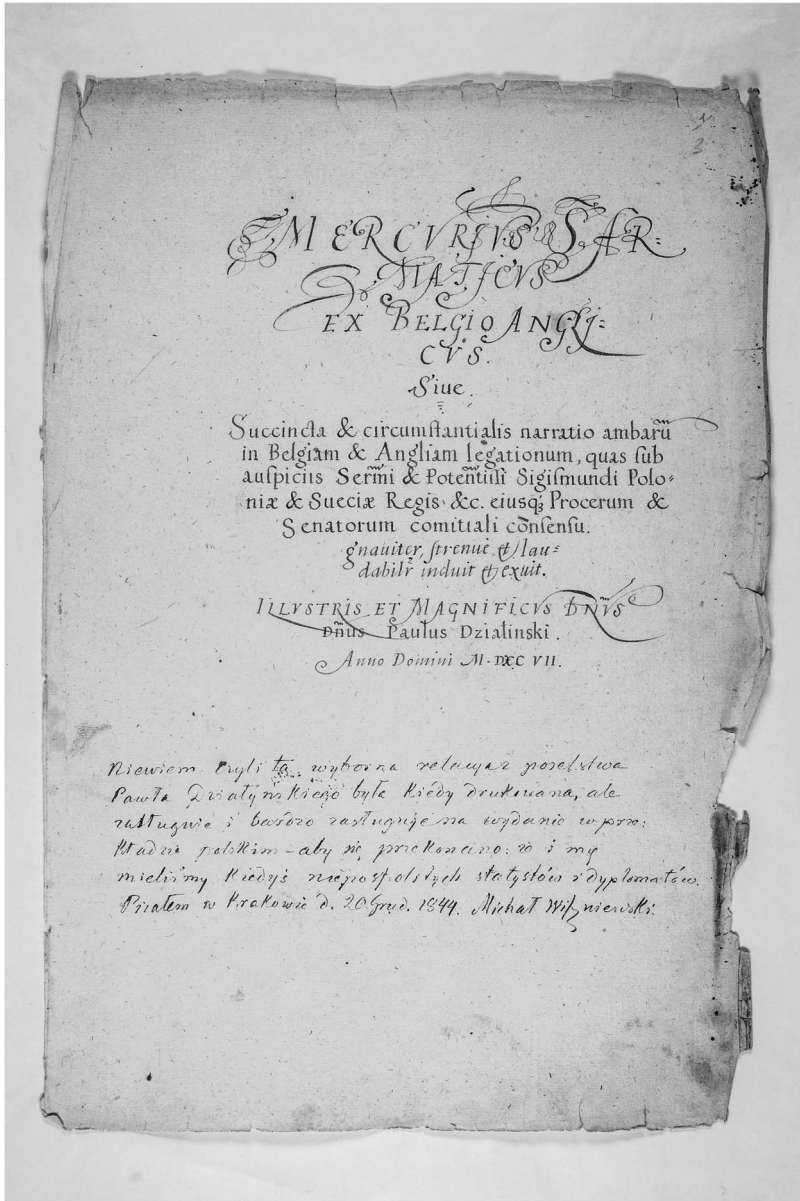 3
MERCVRIVS SAR=
MATICVS
EX BELGIO ANGLI=
CVS.
Siue.
Succincta & circumstantialis narratio ambarũ
in Belgiam & Angliam legationum, quas sub
auspiciis Serm̃i & Potent̃iſſi Sigiſmundi Polo=
niæ & Sueciæ Regis &c. eiusq; Procerum &
Senatorum comitiali cõnſenſu.
gnauiter, ſtrenuè & lau=
dabilr̃ induit & exuit.
ILLVSTRIS ET MAGNIFICVS DÑVS
Dñus Paulus Dzialinski.
Anno Domini M·DXC VII.
Niewiem czyli ta wyborna relacyaz poselstwa
Pawła Działyńskiego była kiedy drukowana, ale
zasługuje i bardzo zasługuje na wydanie w prze:
kładzie polskim – aby się przekonano: że i my
mieliśmy kiedyś niepospolitych statystów i dyplomatów.
Pisałem w Krakowie d. 20 Grud. 1844. Michał Wiszniewski.